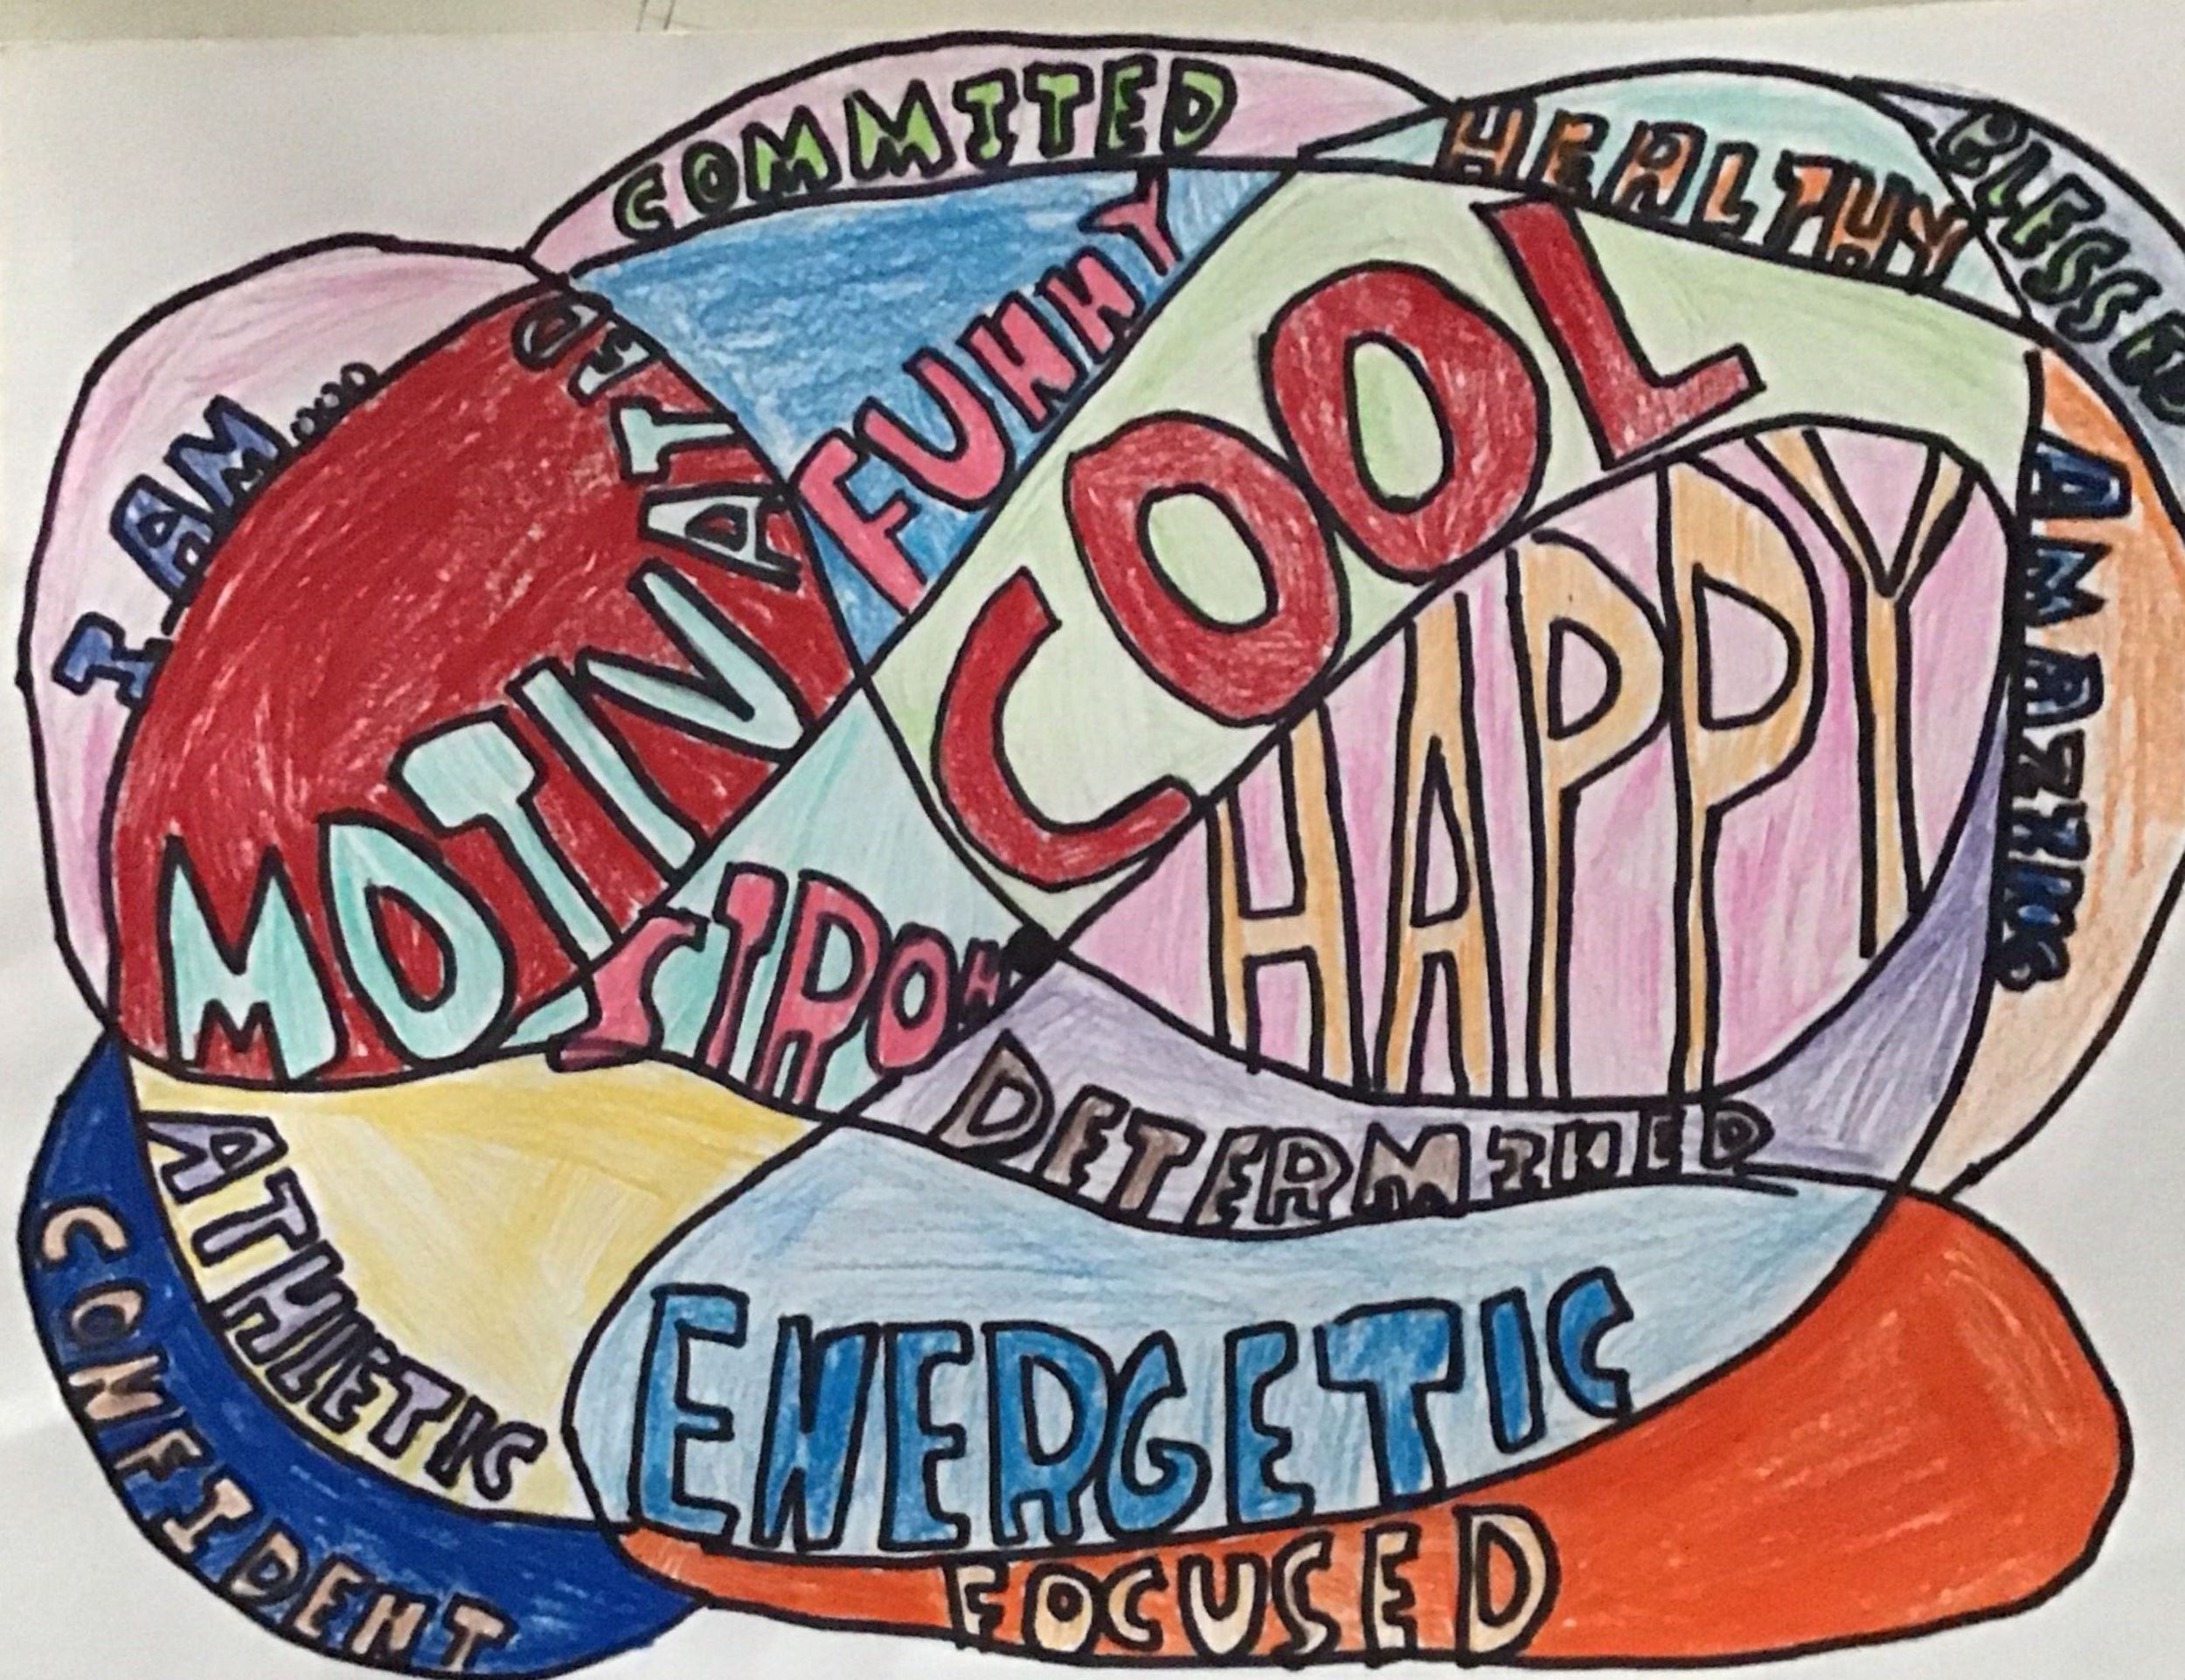 COMMITED
HEALTHY
BLESSED
I AM....
FUNNY
COOL
MOTIVATED
HAPPY
AMAZING
STRONG
DETERMINED
ATHLETIC
CONFIDENT
ENERGETIC
FOCUSED